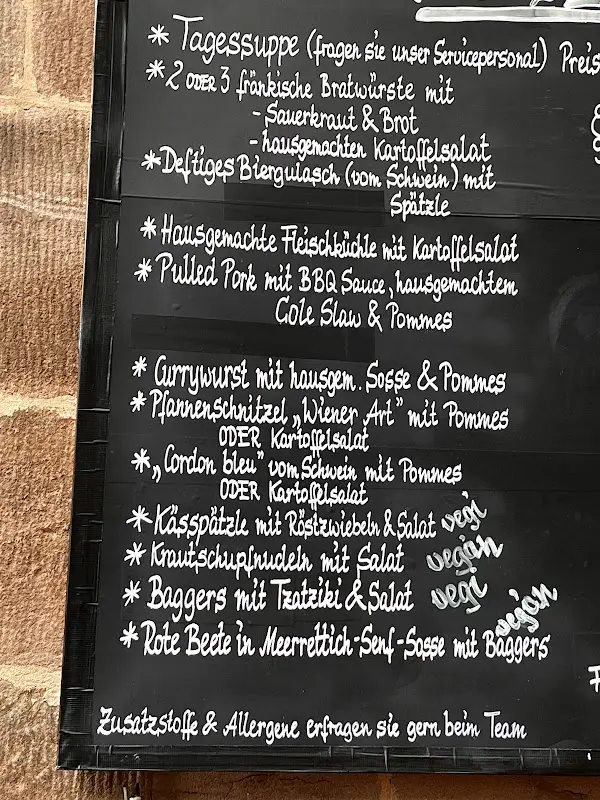 * Tagessuppe (fragen sie unser Servicepersonal) Preis
* 2 ODER 3 fränkische Bratwürste mit
- Sauerkraut & Brot
- hausgemachten Kartoffelsalat
* Deftiges Biergulasch (vom Schwein) mit
Spätzle
* Hausgemachte Fleischküchle mit Kartoffelsalat
* Pulled Pork mit BBQ Sauce, hausgemachtem
Cole Slaw & Pommes
* Currywurst mit hausgem. Sosse & Pommes
* Pfannenschnitzel „Wiener Art" mit Pommes
ODER Kartoffelsalat
* „Cordon bleu" vom Schwein mit Pommes
ODER Kartoffelsalat
* Kässpätzle mit Röstzwiebeln & Salat vegi
* Krautschupfnudeln mit Salat vegan
* Baggers mit Tzatziki & Salat vegi
* Rote Beete in Meerrettich-Senf-Sosse mit Baggers vegan
Zusatzstoffe & Allergene erfragen sie gern beim Team